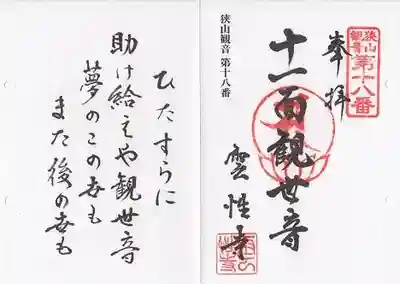 狭山
観音
第十八番
奉拝
十一面観世音
雲性寺
狭山観音 第十八番
ひたすらに
助け給えや観世音
夢のこの世も
また後の世も